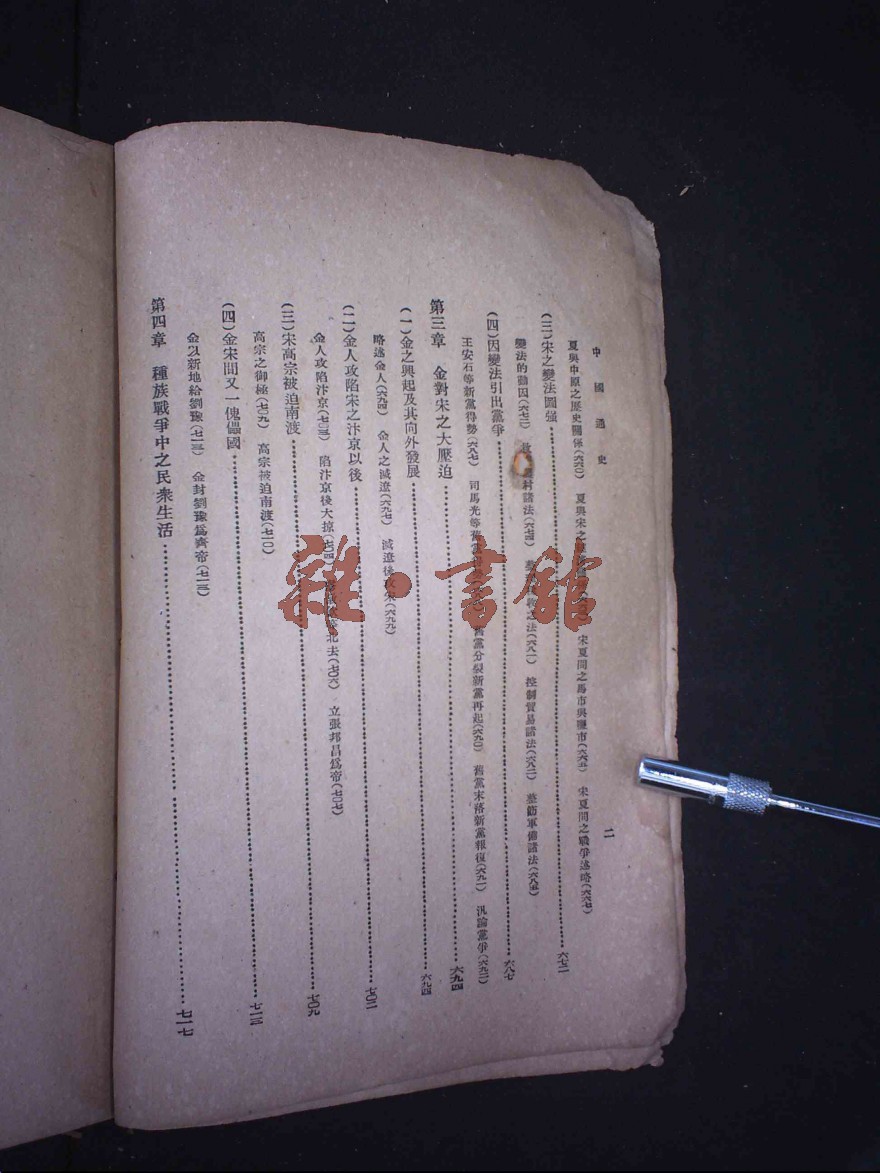 中國通史
二
夏與中原之歷史關係(六六〇) 夏與宋之 宋夏間之馬市與鹽市(六六五) 宋夏間之戰爭述略(六六七)
(三)宋之變法圖強……六七二
變法的動因(六七二) 村諸法(六七四) 之法(六八一) 控制貿易諸法(六八二) 整飭軍備諸法(六八五)
(四)因變法引出黨爭……六八七
王安石等新黨得勢(六八七) 司馬光等舊黨 舊黨分裂新黨再起(六九〇) 舊黨末落新黨報復(六九一) 汎論黨爭(六九二)
第三章 金對宋之大壓迫……六九四
(一)金之興起及其向外發展……六九四
略述金人(六九四) 金人之滅遼(六九七) 滅遼後攻宋(六九九)
(二)金人攻陷宋之汴京以後……七〇三
金人攻陷汴京(七〇三) 陷汴京後大掠(七〇四) 北去(七〇六) 立張邦昌爲帝(七〇七)
(三)宋高宗被迫南渡……七〇九
高宗之御極(七〇九) 高宗被迫南渡(七一〇)
(四)金宋間又一傀儡國……七一三
金以新地給劉豫(七一三) 金封劉豫爲齊帝(七一三)
第四章 種族戰爭中之民衆生活……七一七
雜·書館